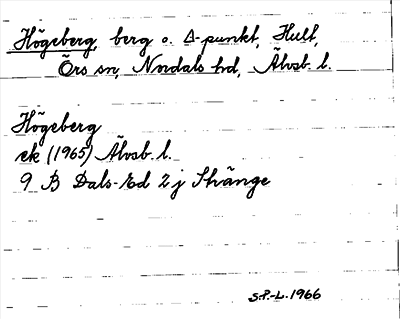 Högeberg, berg o. Δ-punkt, Hult,
Örs sn, Nordals hd, Älvsb. l.
Högeberg
ek (1965) Älvsb. l.
9 B Dals-Ed 2 j Skänge
S.P.-L. 1966